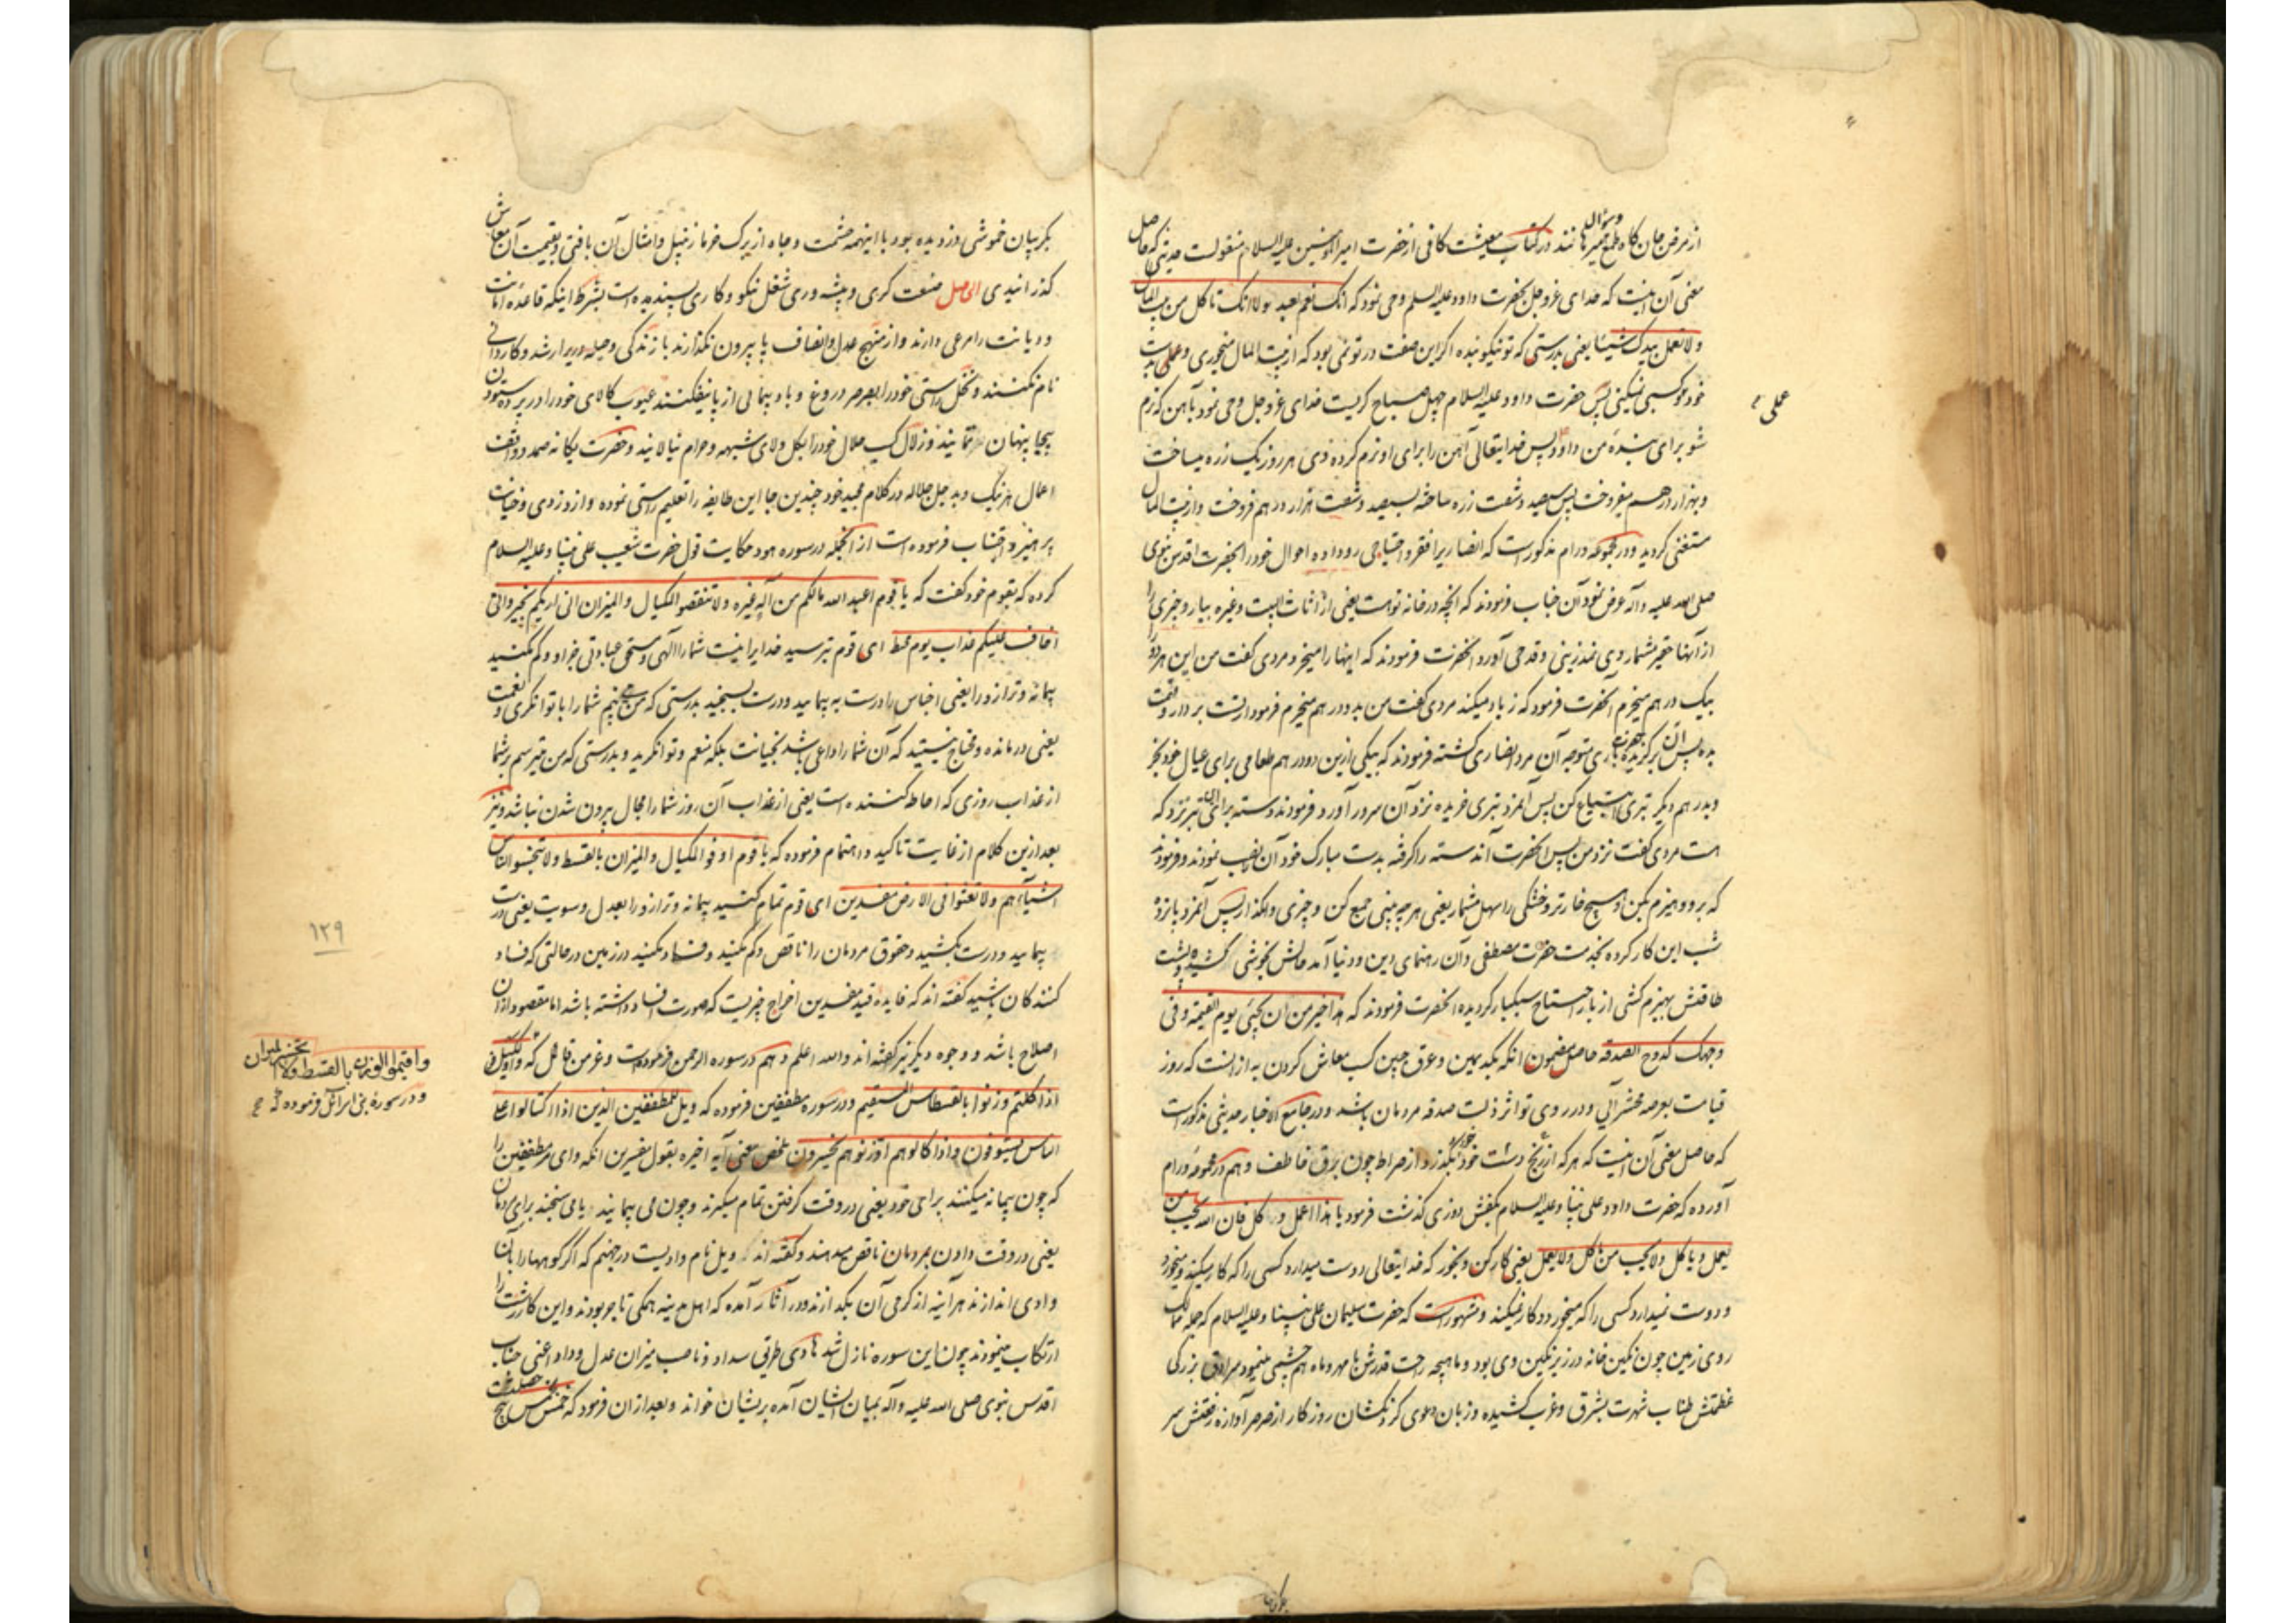 از مرض جان کاه طمع و سؤال نمیرهانند در کتاب معیشت کافی از حضرت امیرالمؤمنین علیه السلام منقولست حدیثی که حاصل
معنی آن اینست که خدای عز و جل بحضرت داود علیه السلم وحی نمود که انک نعم العبد لولا انک تاکل من بیت المال
ولا تعمل بیدک شیئا یعنی بدرستی که تو نیکو بنده اگر این صفت در تو نمی بود که از بیت المال میخوری و عملی بدست
عملی
خود و کسبی نمیکنی پس حضرت داود علیه السلام چهل صباح گریست خدای عز و جل وحی نمود بآهن که نرم
شو برای بندهٔ من داود پس خدایتعالی آهن را برای او نرم کرده وی هر روز یک زره میساخت
و بهزار درهم میفروخت پس سیصد و شصت زره ساخته بسیصد و شصت هزار درهم فروخت و از بیت المال
مستغنی گردید و در مجموعه ورام مذکورست که انصاریرا فقر و احتیاجی رو داده احوال خود را بحضرت اقدس نبوی
صلی الله علیه و اله عرض نمود آن جناب فرمودند که آنچه در خانه توست یعنی از اثاث البیت و غیره بیار و چیزی را
از آنها حقیر مشمار وی نمد زینی و قدحی آورد آنحضرت فرمودند که اینها را میخرد مردی گفت من این هر دو را
بیک درهم میخرم آنحضرت فرمود که زیاد میکند مردی گفت من بدو درهم میخرم فرمود از تست بردار و قیمت
بده پس آن برگزیده حضرت باری متوجه آن مرد انصاری گشته فرمودند که بیکی ازین دو درهم طعامی برای عیال خود بخر
و بدرهم دیگر تبری ابتیاع کن پس آنمرد تبری خریده نزد آن سرور آورد فرمودند دسته برای این تبر نزد که
هست مردی گفت نزد من پس آنحضرت آندسته را گرفته بدست مبارک خود آن را نصب نمودند و فرمودند
که برو و هیزم بکن و هیچ خار تر و خشکی را سهل مشمار یعنی هر چه بینی جمع کن و چیزی وا مگذار پس آنمرد پانزده
شب این کار کرده بخدمت حضرت مصطفی و آن رهنمای دین و دنیا آمد حالش بخوشی کشیده و پشت
طاقتش بهیزم کشی از بار احتیاج سبکبار گردیده آنحضرت فرمودند که هذا خیر من ان یجیٔ یوم القیمة و فی
وجهک کدوح الصدقه حاصل مضمون آنکه بکد یمین و عرق جبین کسب معاش کردن به از آنست که روز
قیامت بعرصه محشر آئی و در روی تو اثر ذلت صدقه مردمان باشد و در جامع الاخبار حدیثی مذکورست
که حاصل معنی آن اینست که هر که از رنج دست خود خورد بگذرد از صراط چون برق خاطف و هم در مجموعهٔ ورام
آورده که حضرت داود علی نبینا و علیه السلام بکفش دوزی گذشت فرمود یا هذا اعمل و کل فان الله یحب من
یعمل و یاکل ولا یحب من یاکل ولا یعمل یعنی کار کن و بخور که خدایتعالی دوست میدارد کسی را که کار میکند و میخورد
و دوست نمیدارد کسی را که میخورد و کار نمیکند و مشهورست که حضرت سلیمان علی نبینا و علیه السلام که جمله ممالک
روی زمین چون نگین خانه در زیر نگین وی بود و ماهچه رایت قدرش با مهر و ماه هم چشمی مینمود سرادق بزرگی
عظمتش طناب شهرت بشرق و غرب کشیده و زبان دعوی گردنکشان روزگار از صرصر آوازه رفعتش سر
بگریبان خموشی دزدیده بود با اینهمه حشمت و جاه از برگ خرما زنبیل و امثال آن بافتی و بقیمت آن معاش
گذرانیدی الحاصل صنعت گری و پیشه وری شغل نیکو و کاری پسندیده است بشرط اینکه قاعده امانت
و دیانت را مرعی دارند و از منهج عدل و انصاف پا بیرون نگذارند بازندگی و حیله وری را رشد و کاردانی
نام نکنند و نخل راستی خود را بصرصر دروغ و باد پیمائی از پا نیفکنند عیوب کالای خود را در پرده ستودن
بیجا پنهان ننمایند و زلال کسب حلال خود را بگل ولای شبهه و حرام نیالایند و حضرت یگانه صمد و واقف
اعمال هر نیک و بد جل جلاله در کلام مجید خود چندین جا این طایفه را تعلیم راستی نموده و از دزدی و خیانت
پرهیز و اجتناب فرموده است از آنجمله در سوره هود حکایت قول حضرت شعیب علی نبینا و علیه السلام
کرده که بقوم خود گفت که یا قوم اعبدوا الله مالکم من اله غیره ولا تنقصوا المکیال والمیزان انی اریکم بخیر وانی
اخاف علیکم عذاب یوم محیط ای قوم بترسید خدایرا نیست شما را الهی و مستحق عبادتی جز او و کم مکنید
پیمانه و ترازو را یعنی اجناس را درست به پیمایید و درست بسنجید بدرستی که من می بینم شما را با توانگری و نعمت
یعنی درمانده و محتاج نیستید که آن شما را داعی باشد بخیانت بلکه منعم و توانگرید و بدرستی که من میترسم بر شما
از عذاب روزی که احاطه کننده است یعنی از عذاب آن روز شما را مجال بیرون شدن نباشد و نیز
بعد ازین کلام از غایت تاکید و اهتمام فرموده که یا قوم اوفوا المکیال والمیزان بالقسط ولا تبخسوا الناس
اشیاءهم ولا تعثوا فی الارض مفسدین ای قوم تمام کنید پیمانه و ترازو را بعدل و سویت یعنی درست
پیمایید و درست بکشید و حقوق مردمان را ناقص و کم مکنید و فساد مکنید در زمین در حالتی که فساد
کنندگان باشید گفته اند که فایده قید مفسدین اخراج چیزیست که صورت افساد داشته باشد اما مقصود از آن
اصلاح باشد و وجوه دیگر نیز گفته اند والله اعلم و هم در سوره الرحمن فرموده است و عز من قائل که واوفوا الکیل
اذا کلتم وزنوا بالقسطاس المستقیم و در سوره مطففین فرموده که ویل للمطففین الذین اذا اکتالوا علی
الناس یستوفون و اذا کالوهم او وزنوهم یخسرون ملخص معنی آیه اخیره بقول مفسرین آنکه وای مر مطففین را
که چون پیمانه میکنند برای خود یعنی در وقت گرفتن تمام میگیرند و چون می پیمایند یا می سنجند برای مردمان
یعنی در وقت دادن بمردمان ناقص میدهند و گفته اند که ویل نام وادیست در جهنم که اگر کوهها را بآن
وادی اندازند هر آینه از گرمی آن بگدازند و در آثار آمده که اهل مدینه همگی تاجر بودند و این کار زشت را
ارتکاب مینمودند چون این سوره نازل شد هادی طریق سداد و ناصب میزان عدل و داد اعنی جناب
اقدس نبوی صلی الله علیه و آله بمیان ایشان آمده بریشان خواند و بعد از آن فرمود که خمس بخمس پنج خصلت
۱۲۹
واقیموا الوزن بالقسط ولا تخسروا المیزان
و در سورهٔ بنی اسرائیل فرموده که